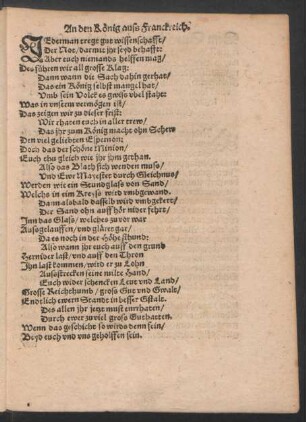 An den König auß Franckreich.
JEderman tregt gut wissenschafft/
Der Not/ darmit jhr seyd behafft:
Aber euch niemands helffen mag/
Des führen wir all grosse Klag:
Dann wann die Sach dahin gerhat/
Das ein König selbst mangel hat/
Vmb sein Volck es gwiß vbel staht:
Was in vnserm vermögen ist/
Das zeigen wir zu dieser frist:
Wir rhaten euch in aller trew/
Das jhr zum König macht ohn Schew
Den viel geliebten Espernon:
Doch das der schöne Minion/
Euch thu gleich wie jhr jhm gethan.
Also das Blath sich wenden muß/
Vnd Ewr Mayester durch Gleichnus/
Werden wie ein Stundglaß von Sand/
Welchs in ein Kreyß wird vmbgewand.
Dann alsbald dasselb wird vmbgekert/
Der Sand ohn auffhör nider fehrt/
Inn das Glaß/ welches zu vor war
Außgelauffen/ vnd gläret gar/
Da es noch in der Höhe sthund:
Also wann jhr euch auff den grund
Hernider last/ vnd auff den Thron
Jhn last kommen/ wird er zu Lohn
Außstrecken seine milte Hand/
Euch wider schencken Leut vnd Land/
Grosse Reichthumb/ groß Gut vnd Gwalt/
Endtlich ewern Standt in besser Gstalt.
Des allen jhr jetzt must enrhaten/
Durch ewer zuviel groß Guthaten.
Wenn das geschicht so wirds denn sein/
Beyd euch vnd vns geholffen fein.